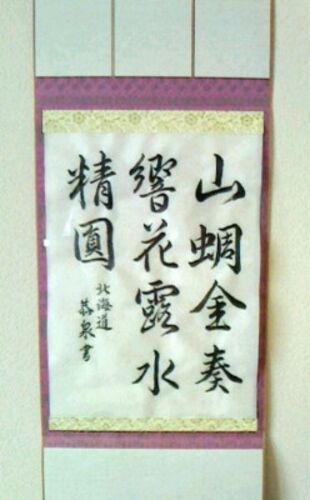 山蜩金奏
響花露水
精圓
北海道
恭泉書